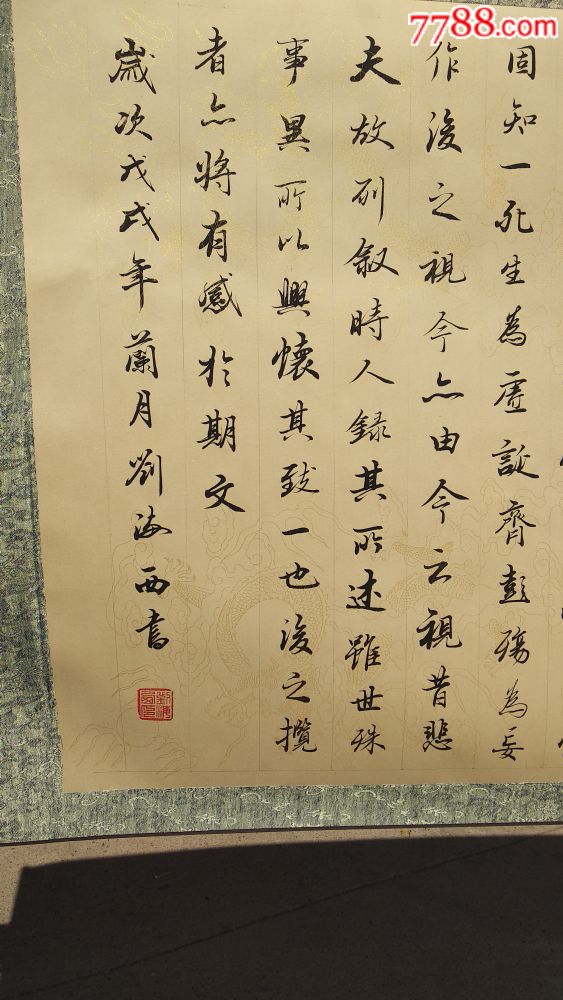 7788.com
固知一死生為虛誕齊彭殤為妄
作後之視今亦由今之視昔悲
夫故列敘時人錄其所述雖世殊
事異所以興懷其致一也後之攬
者亦將有感於期文
歲次戊戌年蘭月劉海西書